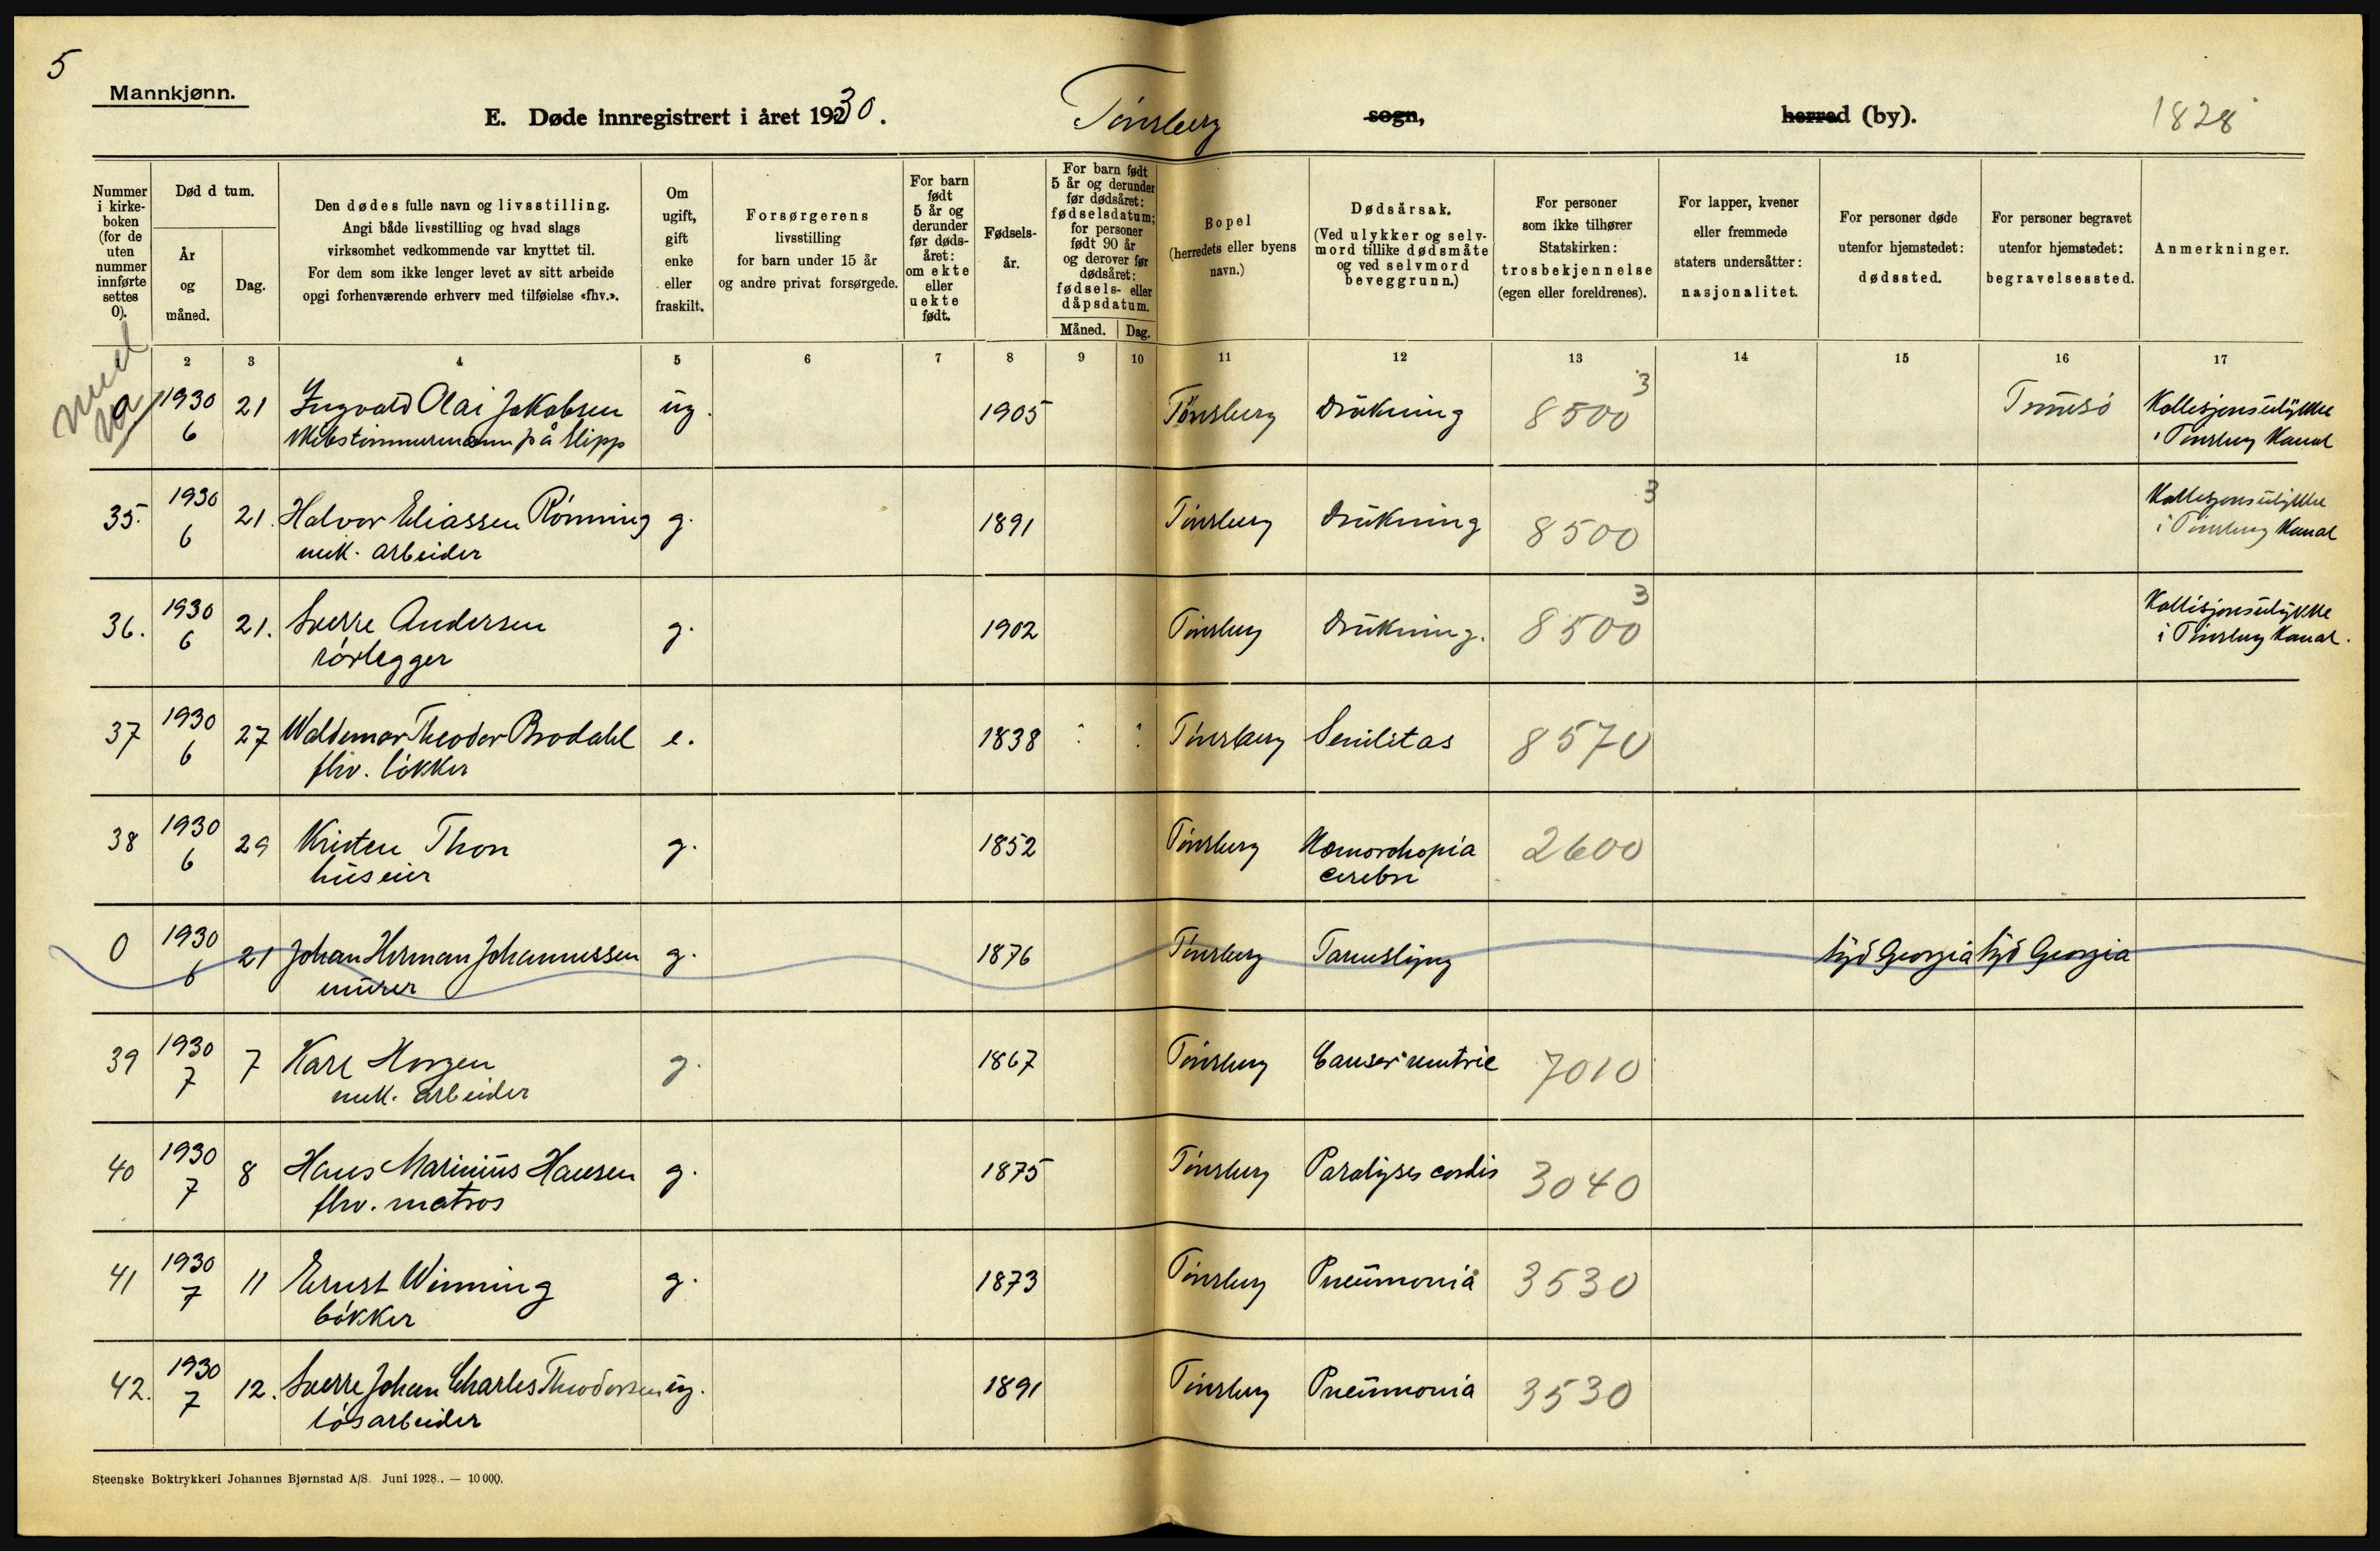 5
Mannkjønn.
E. Døde innregistrert i året 1930.
Tønsberg
sogn,
herred (by).
1828
Nummer i kirkeboken (for de uten nummer innførte settes 0).
Død d tum.
År og måned.
Dag.
Den dødes fulle navn og livsstilling.
Angi både livsstilling og hvad slags
virksomhet vedkommende var knyttet til.
For dem som ikke lenger levet av sitt arbeide
opgi forhenværende erhverv med tilføielse «fhv.».
Om ugift, gift enke eller fraskilt.
Forsørgerens
livsstilling
for barn under 15 år
og andre privat forsørgede.
For barn født 5 år og derunder før dødsåret: om ekte eller uekte født.
Fødselsår.
For barn født 5 år og derunder før dødsåret: fødselsdatum; for personer født 90 år og derover før dødsåret: fødsels- eller dåpsdatum.
Måned. Dag.
Bopel
(herredets eller byens navn.)
Dødsårsak.
(Ved ulykker og selvmord tillike dødsmåte og ved selvmord beveggrunn.)
For personer som ikke tilhører Statskirken: trosbekjennelse (egen eller foreldrenes).
For lapper, kvener eller fremmede staters undersåtter: nasjonalitet.
For personer døde utenfor hjemstedet: dødssted.
For personer begravet utenfor hjemstedet: begravelsessted.
Anmerkninger.
2 3 4 5 6 7 8 9 10 11 12 13 14 15 16 17
1930 21 Ingvald Olai Jakobsen ug. 1905 Tønsberg Drukning 8500 3 Tromsø Kollisjonsulykke
6 skibstømmermann på slipp i Tønsberg Kanal
35. 1930 21. Halvor Eliassen Rønning g. 1891 Tønsberg Drukning 8500 3 Kollisjonsulykke
6 mek. arbeider i Tønsberg Kanal
36. 1930 21. Sverre Andersen g. 1902 Tønsberg Drukning. 8500 3 Kollisjonsulykke
6 rørlegger i Tønsberg Kanal.
37 1930 27 Waldemar Theodor Brodahl e. 1838 Tønsberg Senilitas 8570
6 fhv. bøkker
38 1930 29 Kristen Thon g. 1852 Tønsberg Hæmorrhopia 2600
6 huseier cerebri
0 1930 21 Johan Herman Johannessen g. 1876 Tønsberg Tarmslyng Syd Georgia Syd Georgia
6 murer
39 1930 7 Karl Horgen g. 1867 Tønsberg Cancer ventric 7010
7 mek. arbeider
40 1930 8 Hans Marinius Hansen g. 1875 Tønsberg Paralyses cordis 3040
7 fhv. matros
41 1930 11 Ernst Winning g. 1873 Tønsberg Pneumonia 3530
7 bøkker
42. 1930 12. Sverre Johan Charles Theodorsen ug. 1891 Tønsberg Pneumonia 3530
7 løsarbeider
Steenske Boktrykkeri Johannes Bjørnstad A/S. Juni 1928. — 10 000.